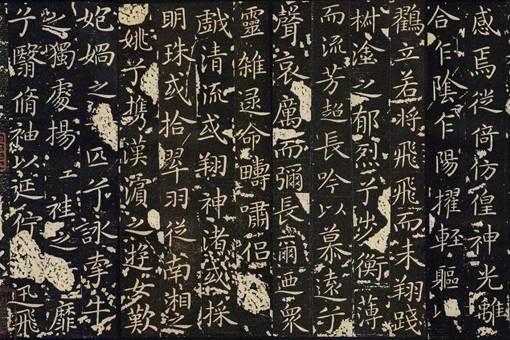 感焉徙倚仿偟神光離
合乍陰乍陽擢輕軀以
鸛立若將飛飛而未翔踐
樹塗之郁烈兮步衡薄
而流芳超長吟以慕遠兮
聲哀厲而彌長爾迺眾
靈雜遝命疇嘯侶或
戲清流或翔神渚或採
明珠或拾翠羽從南湘之
姚兮攜漢濱之遊女歎
妃媧之匹兮詠牽牛
之獨處揚袿之靡
兮翳脩袖以延佇迅飛